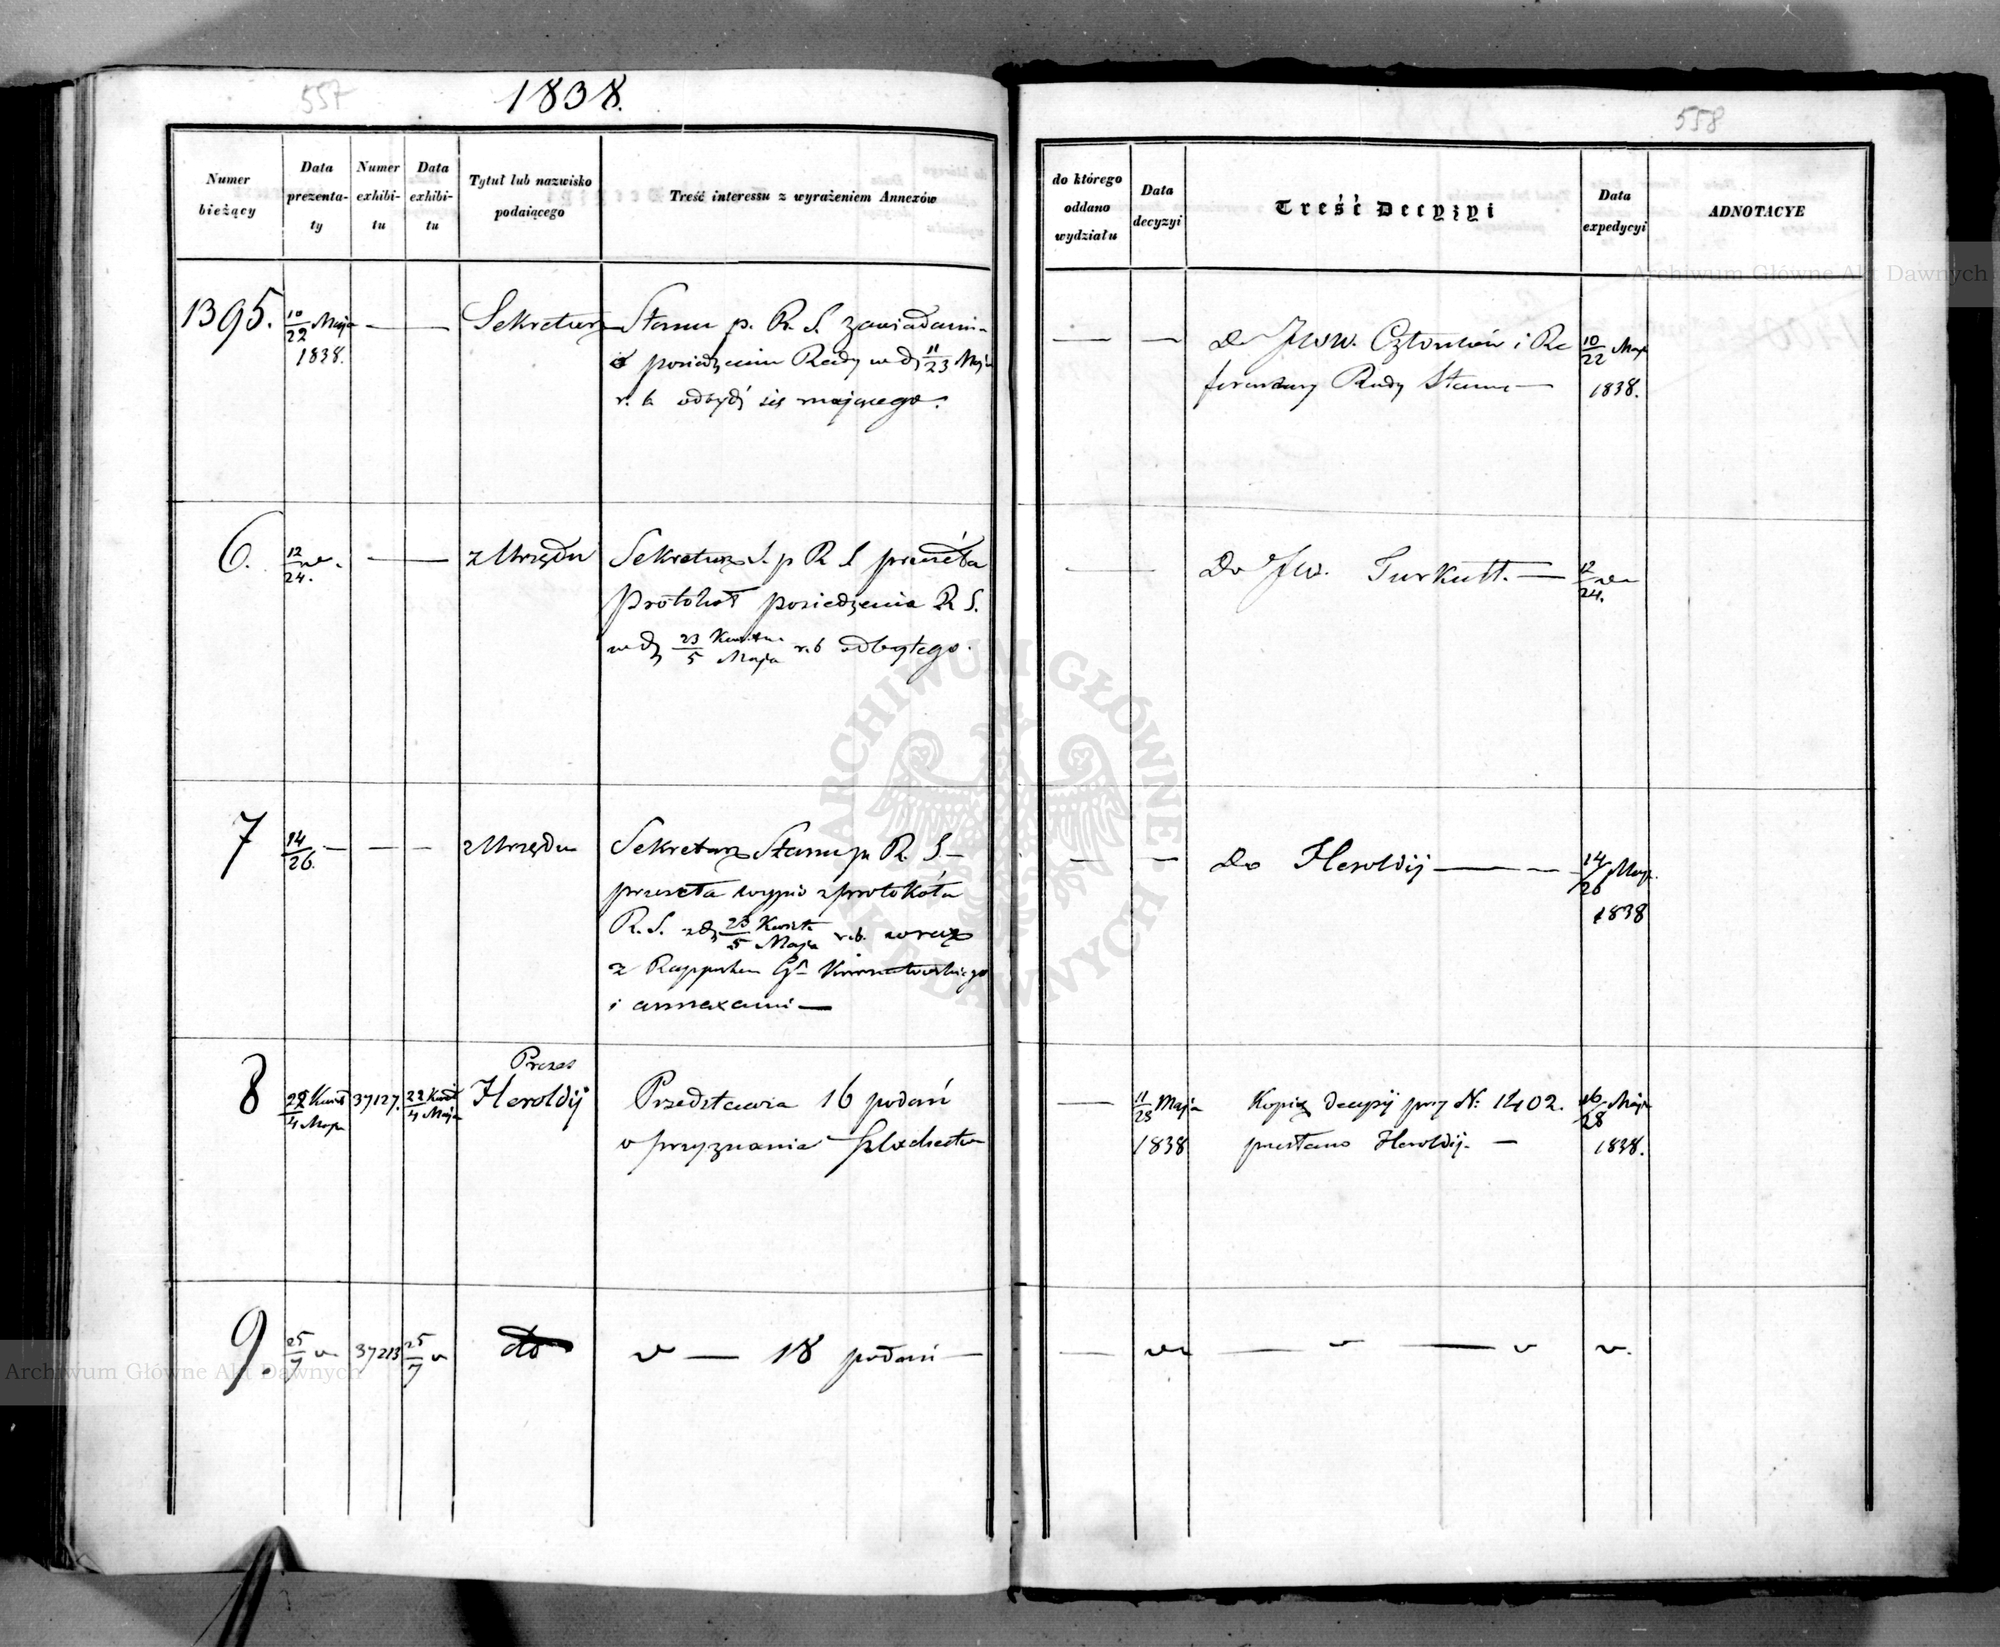 557
1838.
Numer bieżący
Data prezenta-ty
Numer exhibi-tu
Data exhibi-tu
Tytuł lub nazwisko podaiącego
Treść interessu z wyrażeniem Annexów
1395.
10/22 Maja 1838.
— —
Sekretarz Stanu p. R. S. zawiadamia
o posiedzeniu Rady w d. 11/23 Maja
r. b. odbyć się mającego.
6.
12/24.
— —
z Urzędu
Sekretarz S. p R S przesyła
Protokół posiedzenia R S.
w d. 23 Kwietnia/5 Maja r. b odbytego.
7
14/26. —
— —
z Urzędu
Sekretarz Stanu p. R. S. —
przesyła wypis z protokółu
R. S. z d. 23 Kwiet/5 Maja r. b. wraz
z Rapportem
i annexami —
8
22 Kwiet/4 Maja
37127.
22 Kwiet/4 Maja
Prezes
Heroldij
Przedstawia 16 podań
o przyznanie Szlachectwa
9.
25/7
37213
25/7
do
— 18 podań —
558
do którego oddano wydziału
Data decyzyi
Treść Decyzyi
Data expedycyi
ADNOTACYE
— —
Do JWW. Członków i Re
ferendarzy Rady Stanu —
10/22 Maja 1838.
—
Do JW. Turkułł. —
12/24.
— —
Do Heroldij — —
14/26 Maja
1838
—
11/23 Maja 1838
Kopię decyzyi przy N: 1402.
przesłano Heroldij. —
16/28 Maja
1838.
— — —
Archiwum Główne Akt Dawnych
ARCHIWUM GŁÓWNE AKT DAWNYCH
Archiwum Główne Akt Dawnych